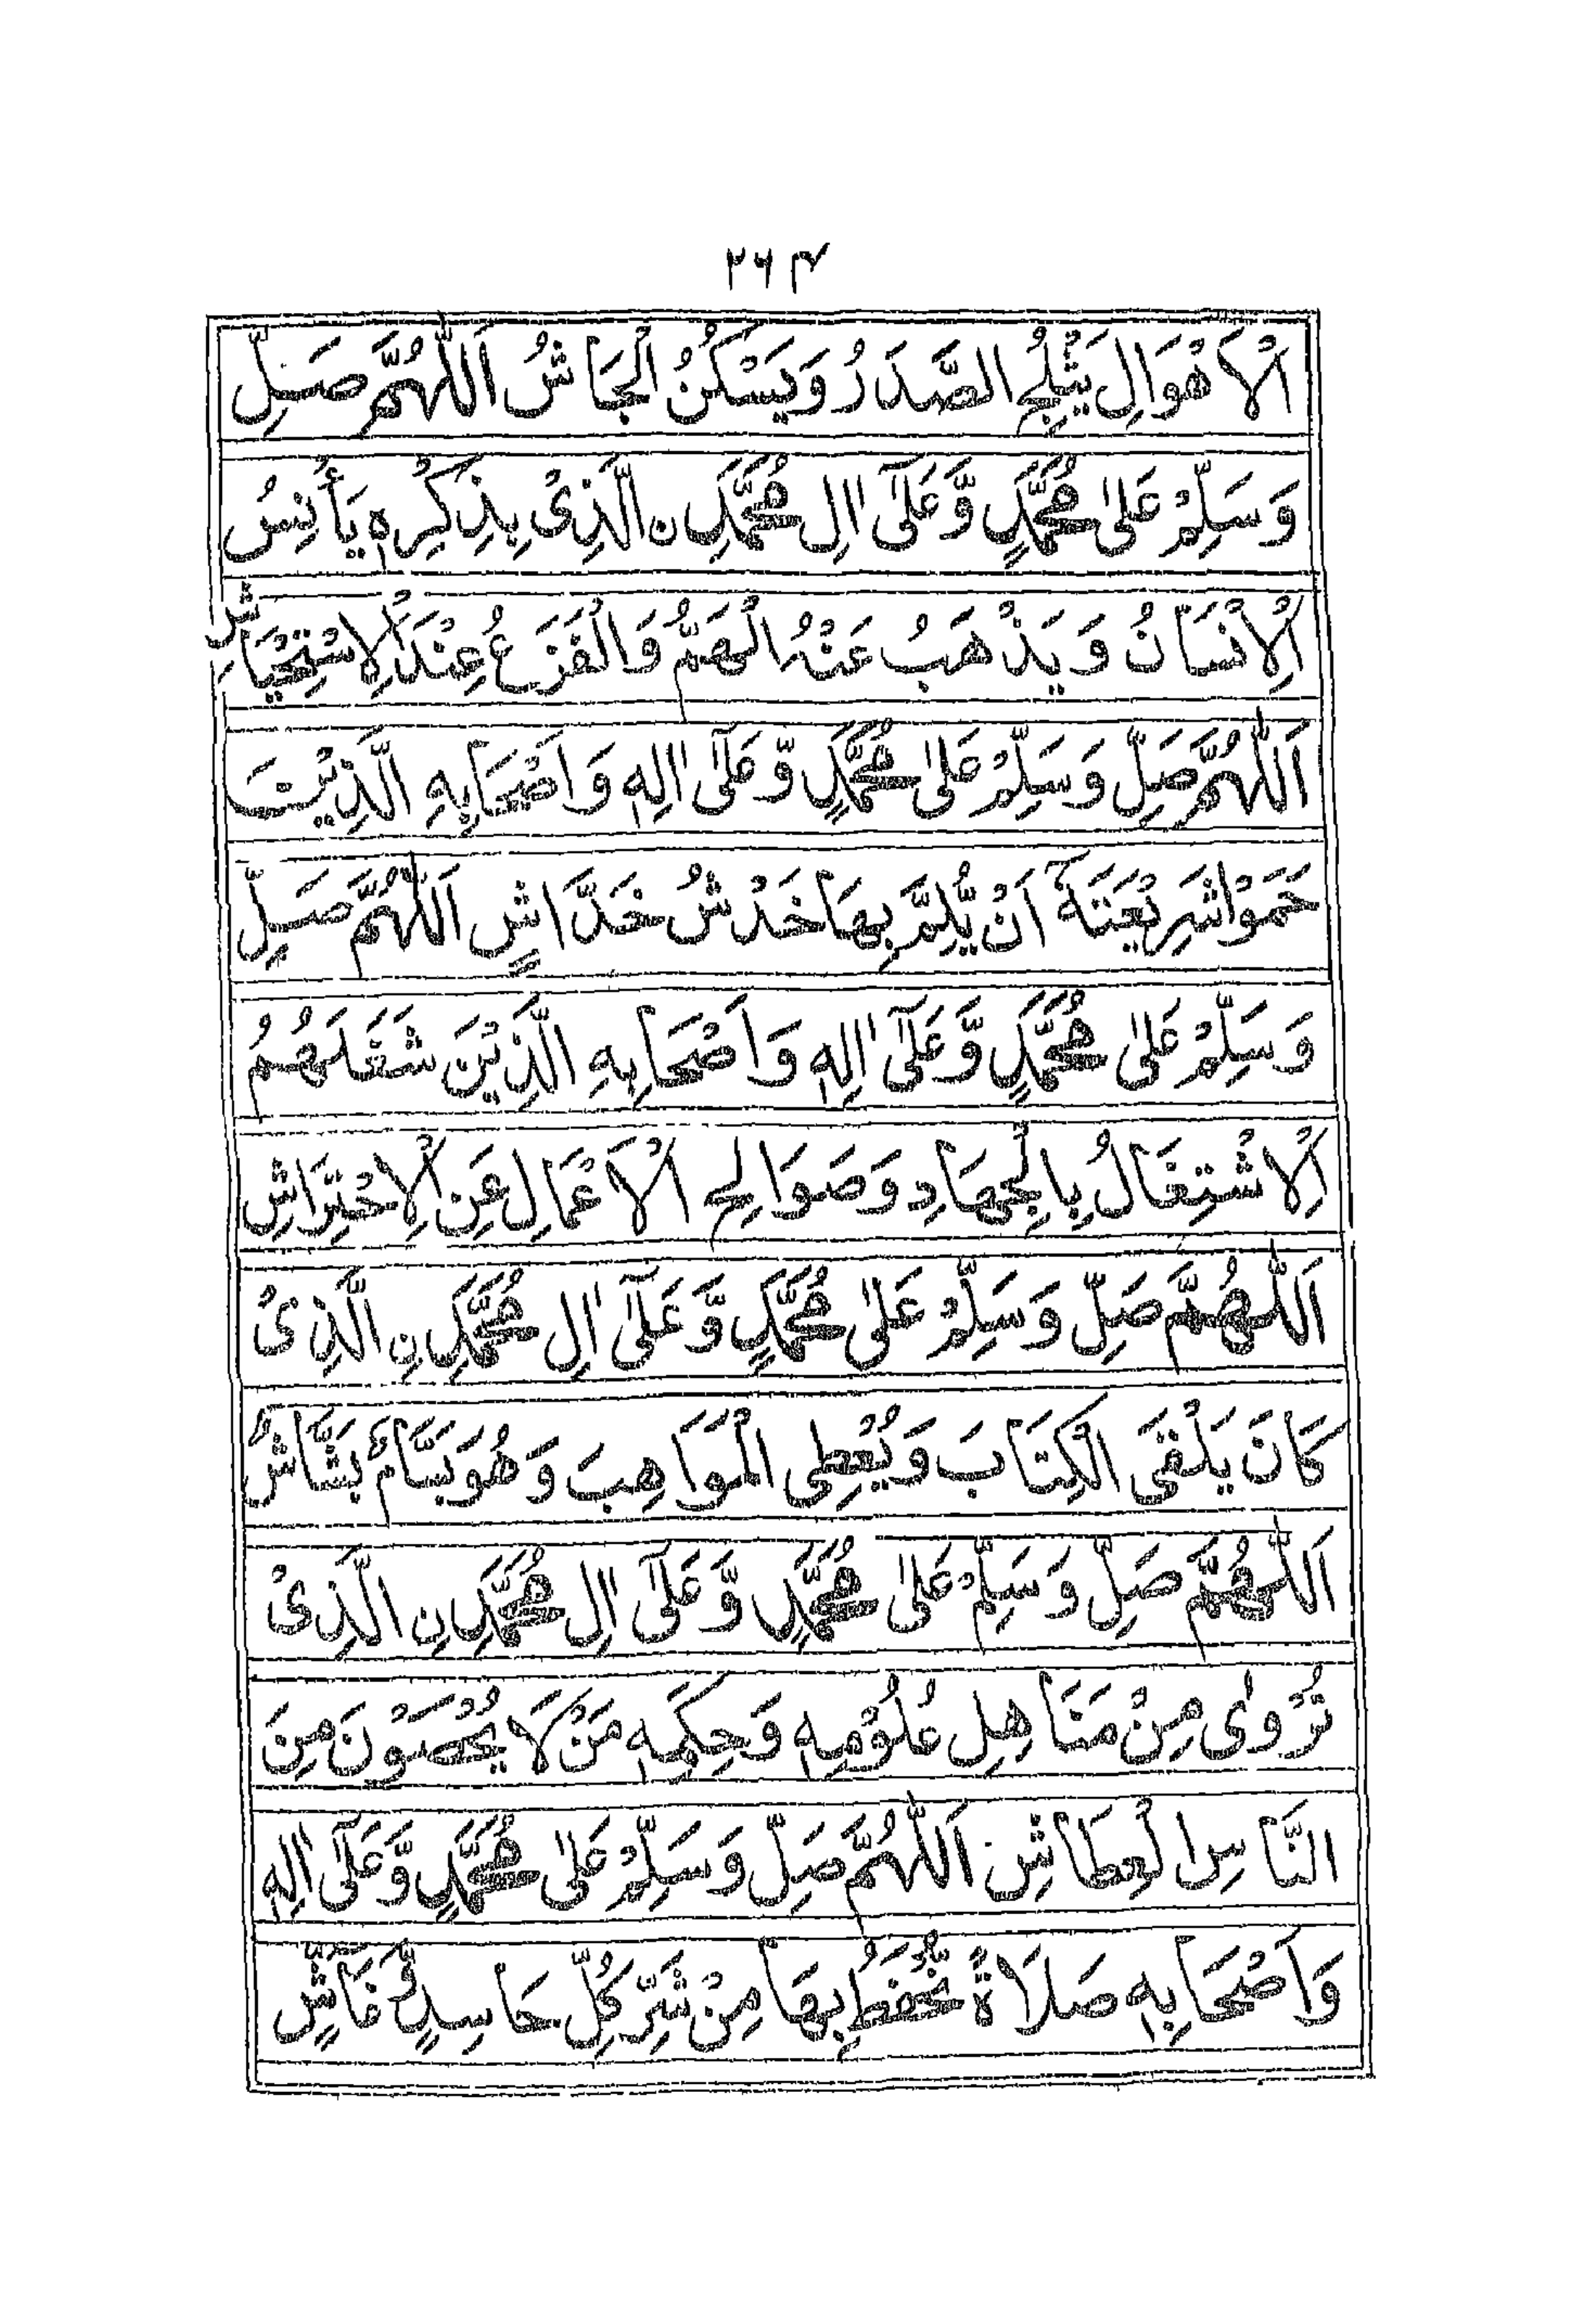 ٢٦٣
اَلْاَهْوَالِ يَثْلِجُ الصَّدَرُ وَيَسْكُنُ الْجَاشُ اَللّٰهُمَّ صَلِّ
وَسَلِّمْ عَلٰى مُحَمَّدٍ وَّعَلٰٓى اٰلِ مُحَمَّدِ ن الَّذِىْ بِذِكْرِهٖ يَأْنِسُ
اَلْاِنْسَانُ وَيَذْهَبُ عَنْهُ الْهَمُّ وَالْفَزَعُ عِنْدَ الْاِسْتِيْحَاشِ
اَللّٰهُمَّ صَلِّ وَسَلِّمْ عَلٰى مُحَمَّدٍ وَّعَلٰٓى اٰلِهٖ وَاَصْحَابِهِ الَّذِيْنَ
حَمَوْا شَرِيْعَتَهٗٓ اَنْ يُّلِمَّ بِهَا خَدْشُ خَدَّاشٍ اَللّٰهُمَّ صَلِّ
وَسَلِّمْ عَلٰى مُحَمَّدٍ وَّعَلٰٓى اٰلِهٖ وَاَصْحَابِهِ الَّذِيْنَ شَغَلَهُمُ
اَلْاِشْتِغَالُ بِالْجِهَادِ وَصَوَالِحِ الْاَعْمَالِ عَنِ الْاِحْتِرَاشِ
اَللّٰهُمَّ صَلِّ وَسَلِّمْ عَلٰى مُحَمَّدٍ وَّعَلٰٓى اٰلِ مُحَمَّدِ نِ الَّذِىْ
كَانَ يَلْقَى الْكِتَابَ وَيُعْطِى الْمَوَاهِبَ وَهُوَ بَسَّامٌ بَشَّاشٌ
اَللّٰهُمَّ صَلِّ وَسَلِّمْ عَلٰى مُحَمَّدٍ وَّعَلٰٓى اٰلِ مُحَمَّدِ نِ الَّذِىْ
تُرْوٰى مِنْ مَنَاهِلِ عُلُوْمِهٖ وَحِكَمِهٖ مَنْ لَا يُحْصَوْنَ مِنَ
النَّاسِ الْعِطَاشِ اَللّٰهُمَّ صَلِّ وَسَلِّمْ عَلٰى مُحَمَّدٍ وَّعَلٰٓى اٰلِهٖ
وَاَصْحَابِهٖ صَلَاةً تُحْفَظُ بِهَا مِنْ شَرِّ كُلِّ حَاسِدٍ وَّغَاشٍّ